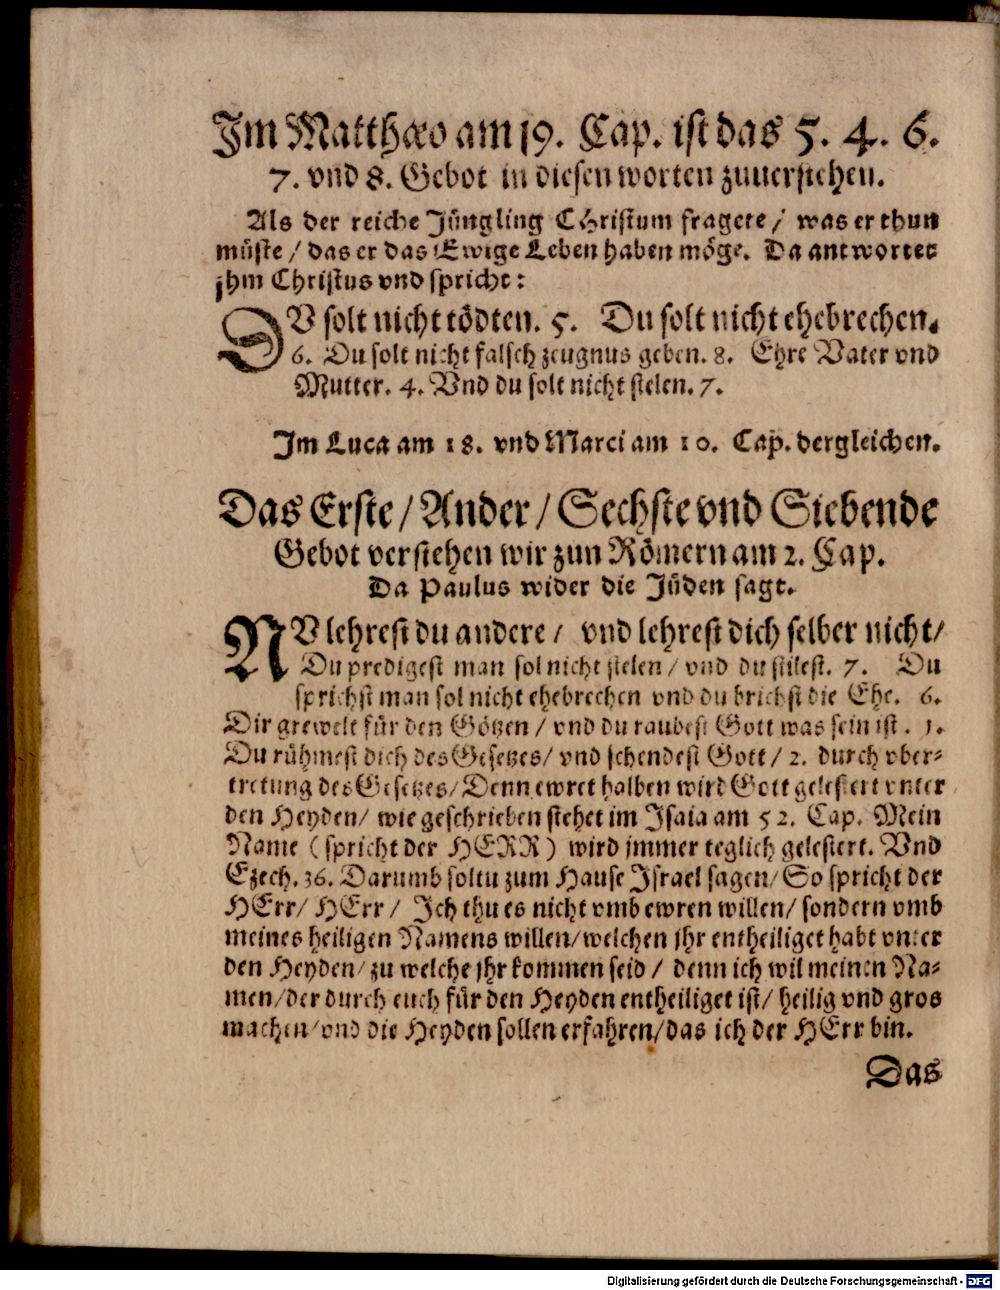 Im Matthæo am 19. Cap. ist das 5. 4. 6.
7. vnd 8. Gebot in diesen worten zuuerstehen.
Als der reiche Jüngling CHristum fragete / was er thun
müste / das er das Ewige Leben haben möge. Da antwortet
jhm Christus vnd spricht:
DV solt nicht tödten. 5. Du solt nicht ehebrechen.
6. Du solt nicht falsch zeugnus geben. 8. Ehre Vater vnd
Mutter. 4. Vnd du solt nicht stelen. 7.
Im Luca am 18. vnd Marci am 10. Cap. dergleichen.
Das Erste / Ander / Sechste vnd Siebende
Gebot verstehen wir zun Römern am 2. Cap.
Da Paulus wider die Jüden sagt.
NV lehrest du andere / vnd lehrest dich selber nicht /
Du predigest man sol nicht stelen / vnd du stilest. 7. Du
sprichst man sol nicht ehebrechen vnd du brichst die Ehe. 6.
Dir grewelt für den Götzen / vnd du raubest Gott was sein ist. 1.
Du rühmest dich des Gesetzes / vnd schendest Gott / 2. durch vber-
trettung des Gesetzes / Denn ewret halben wird Gott gelestert vnter
den Heyden / wie geschrieben stehet im Isaia am 52. Cap. Mein
Name (spricht der HERR) wird jmmer teglich gelestert. Vnd
Ezech. 36. Darumb soltu zum Hause Israel sagen / So spricht der
HErr / HErr / Ich thu es nicht vmb ewren willen / sondern vmb
meines heiligen Namens willen / welchen jhr entheiliget habt vnter
den Heyden / zu welche jhr kommen seid / denn ich wil meinen Na-
men / der durch euch für den Heyden entheiliget ist / heilig vnd gros
machen / vnd die Heyden sollen erfahren / das ich der HErr bin.
Das
Digitalisierung gefördert durch die Deutsche Forschungsgemeinschaft - DFG